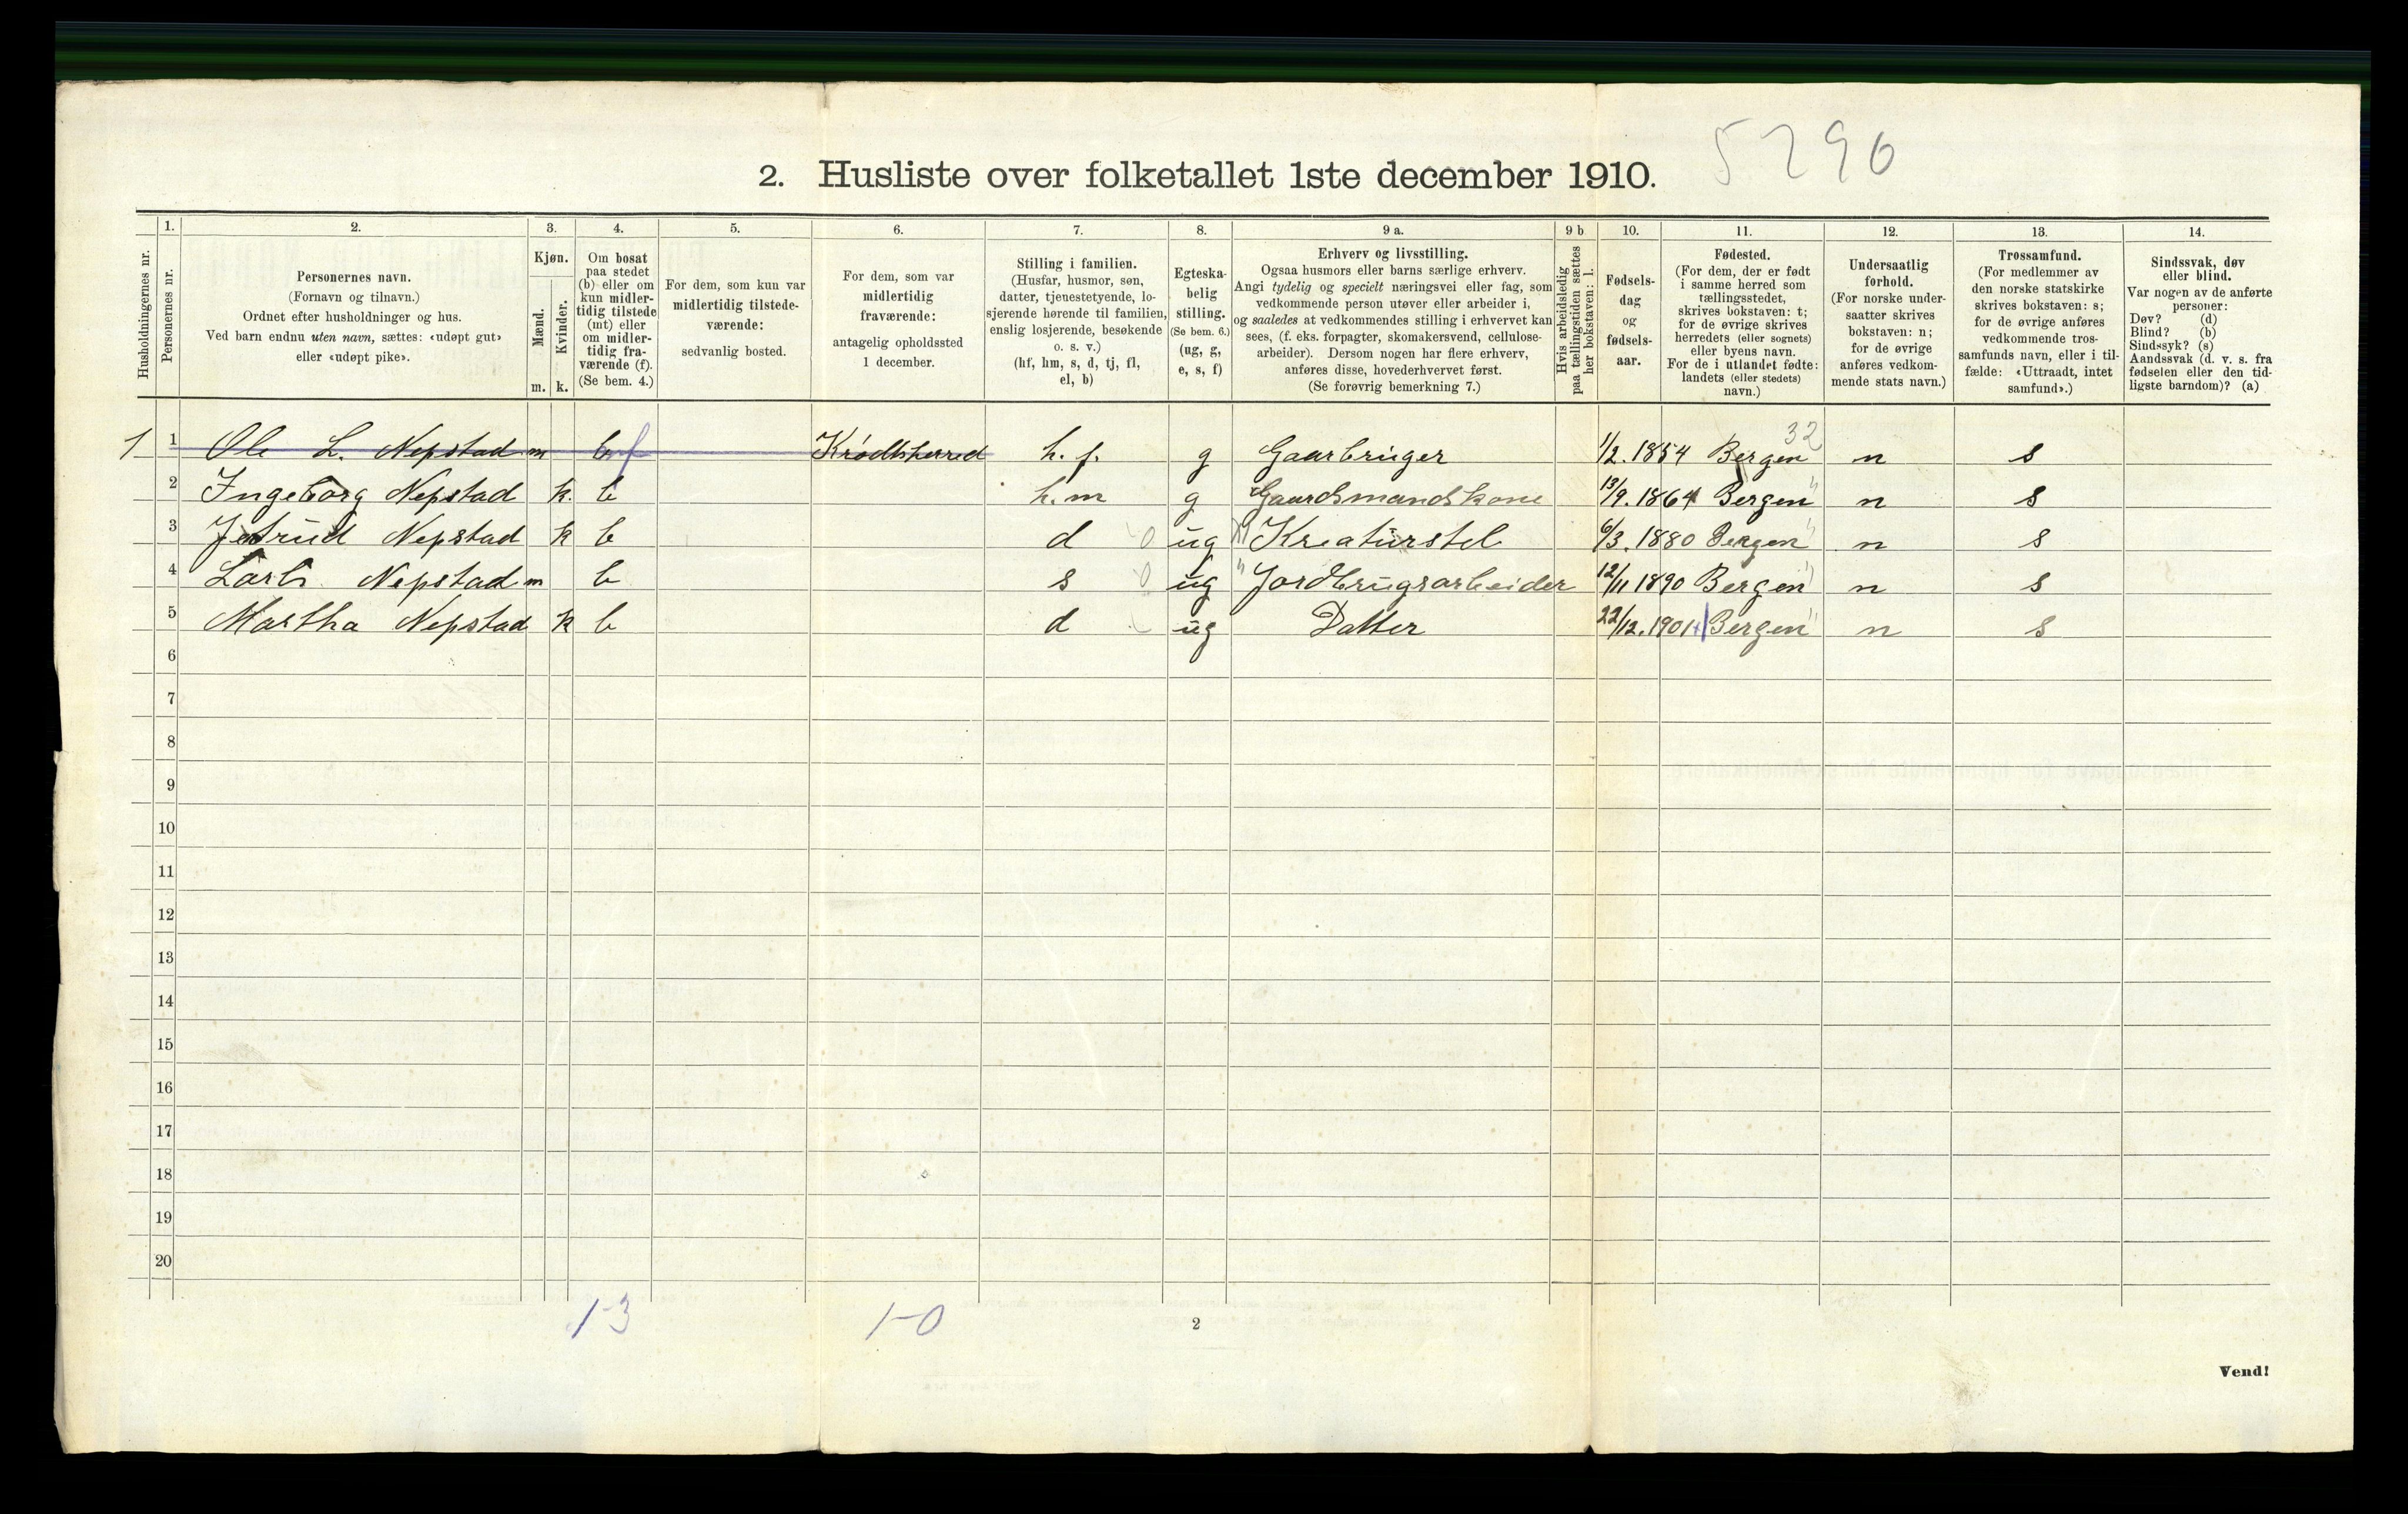 5290
2. Husliste over folketallet 1ste december 1910.
Husholdningernes nr.
1.
Personernes nr.
2.
Personernes navn.
(Fornavn og tilnavn.)
Ordnet efter husholdninger og hus.
Ved barn endnu uten navn, sættes: «udøpt gut»
eller «udøpt pike».
3.
Kjøn.
Mænd.
m.
Kvinder.
k.
4.
Om bosat
paa stedet
(b) eller om
kun midler-
tidig tilstede
(mt) eller
om midler-
tidig fra-
værende (f).
(Se bem. 4.)
5.
For dem, som kun var
midlertidig tilstede-
værende:
sedvanlig bosted.
6.
For dem, som var
midlertidig
fraværende:
antagelig opholdssted
1 december.
7.
Stilling i familien.
(Husfar, husmor, søn,
datter, tjenestetyende, lo-
sjerende hørende til familien,
enslig losjerende, besøkende
o. s. v.)
(hf, hm, s, d, tj, fl,
el, b)
8.
Egteska-
belig
stilling.
(Se bem. 6.)
(ug, g,
e, s, f)
9 a.
Erhverv og livsstilling.
Ogsaa husmors eller barns særlige erhverv.
Angi tydelig og specielt næringsvei eller fag, som
vedkommende person utøver eller arbeider i,
og saaledes at vedkommendes stilling i erhvervet kan
sees, (f. eks. forpagter, skomakersvend, cellulose-
arbeider). Dersom nogen har flere erhverv,
anføres disse, hovederhvervet først.
(Se forøvrig bemerkning 7.)
9 b
Hvis arbeidsledig
paa tællingstiden sættes
her bokstaven: l.
10.
Fødsels-
dag
og
fødsels-
aar.
11.
Fødested.
(For dem, der er født
i samme herred som
tællingsstedet,
skrives bokstaven: t;
for de øvrige skrives
herredets (eller sognets)
eller byens navn.
For de i utlandet fødte:
landets (eller stedets)
navn.)
12.
Undersaatlig
forhold.
(For norske under-
saatter skrives
bokstaven: n;
for de øvrige
anføres vedkom-
mende stats navn.)
13.
Trossamfund.
(For medlemmer av
den norske statskirke
skrives bokstaven: s;
for de øvrige anføres
vedkommende tros-
samfunds navn, eller i til-
fælde: «Uttraadt, intet
samfund».)
14.
Sindssvak, døv
eller blind.
Var nogen av de anførte
personer:
Døv? (d)
Blind? (b)
Sindssyk? (s)
Aandssvak (d. v. s. fra
fødselen eller den tid-
ligste barndom)? (a)
32
1 1 Ole L. Nepstad m b f Krødtsherred h. f. g Gaarbruger 1/2. 1854 Bergen n s
2 Ingeborg Nepstad k. b h. m g Gaardsmandskone 13/9. 1864 Bergen " n s
3 Jetrud Nepstad k b d 0 ug Kreaturstel 6/3. 1880 Bergen " n s
4 Lars Nepstad m b s 0 ug " Jordbrugsarbeider 12/11 1890 Bergen " n s
5 Martha Nepstad k b d ug Datter 22/12. 1901 Bergen " n s
6
7
8
9
10
11
12
13
14
15
16
17
18
19
20
1-3 1-0
2
Vend!